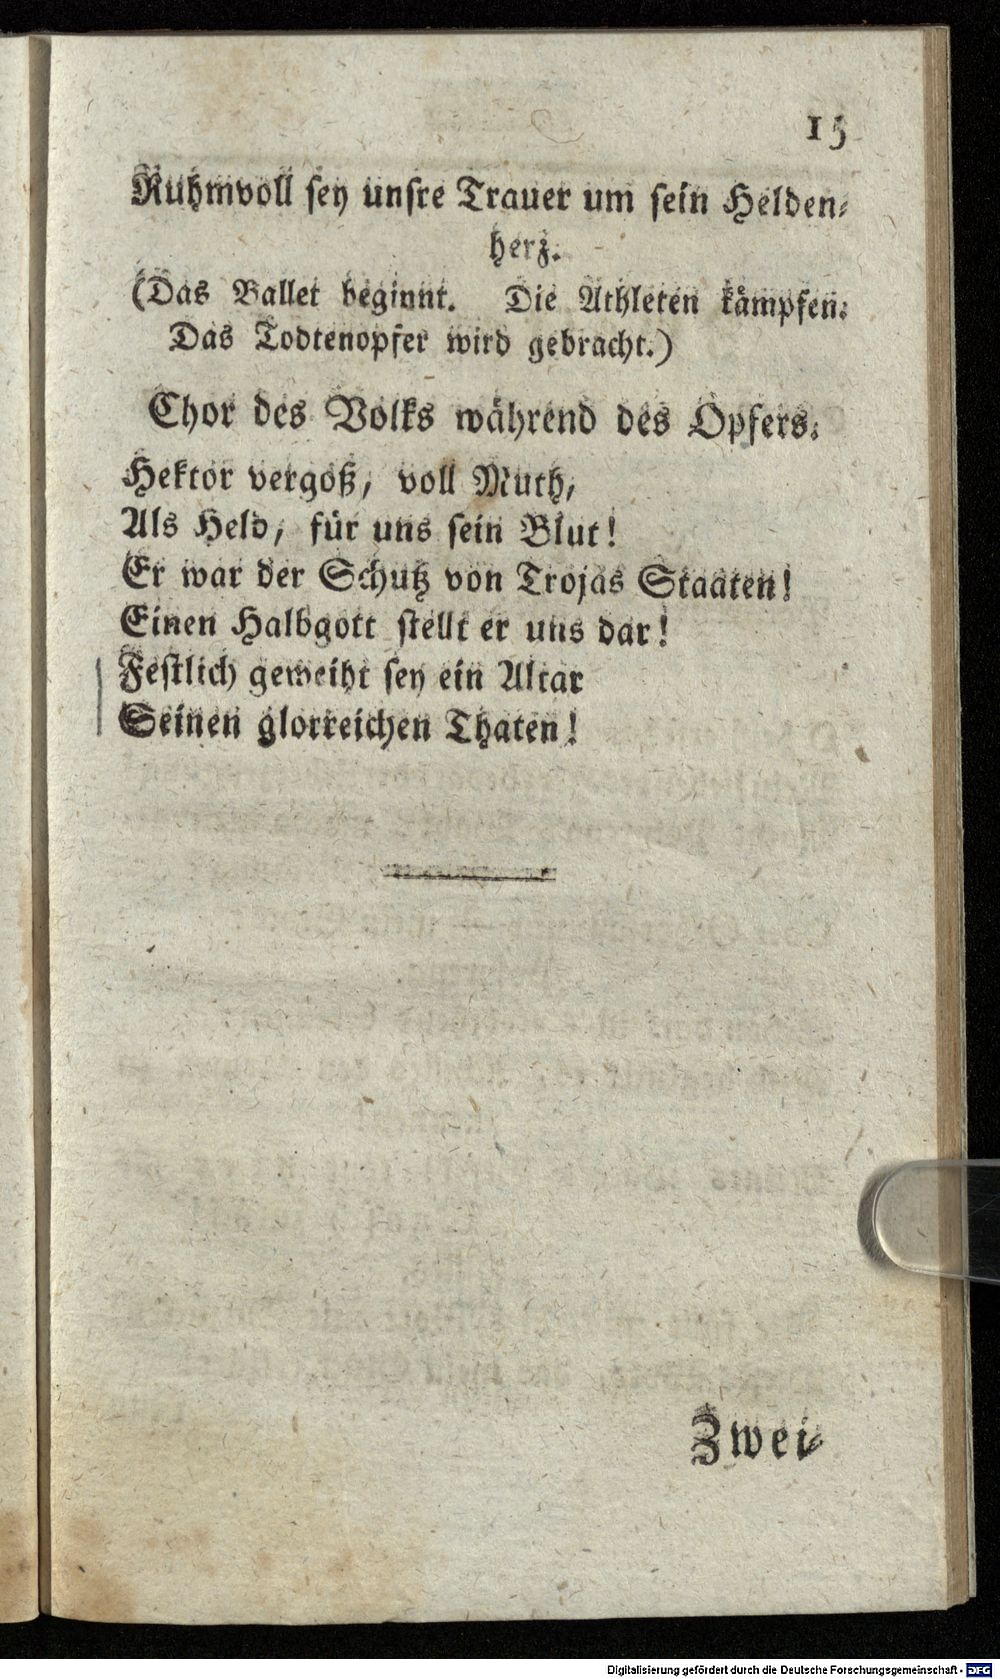 15
Ruhmvoll sey unsre Trauer um sein Helden-
herz.
(Das Ballet beginnt. Die Athleten kämpfen.
Das Todtenopfer wird gebracht.)
Chor des Volks während des Opfers.
Hektor vergoß, voll Muth,
Als Held, für uns sein Blut!
Er war der Schutz von Trojas Staaten!
Einen Halbgott stellt er uns dar!
Festlich geweiht sey ein Altar
Seinen glorreichen Thaten!
Zwei-
Digitalisierung gefördert durch die Deutsche Forschungsgemeinschaft - DFG